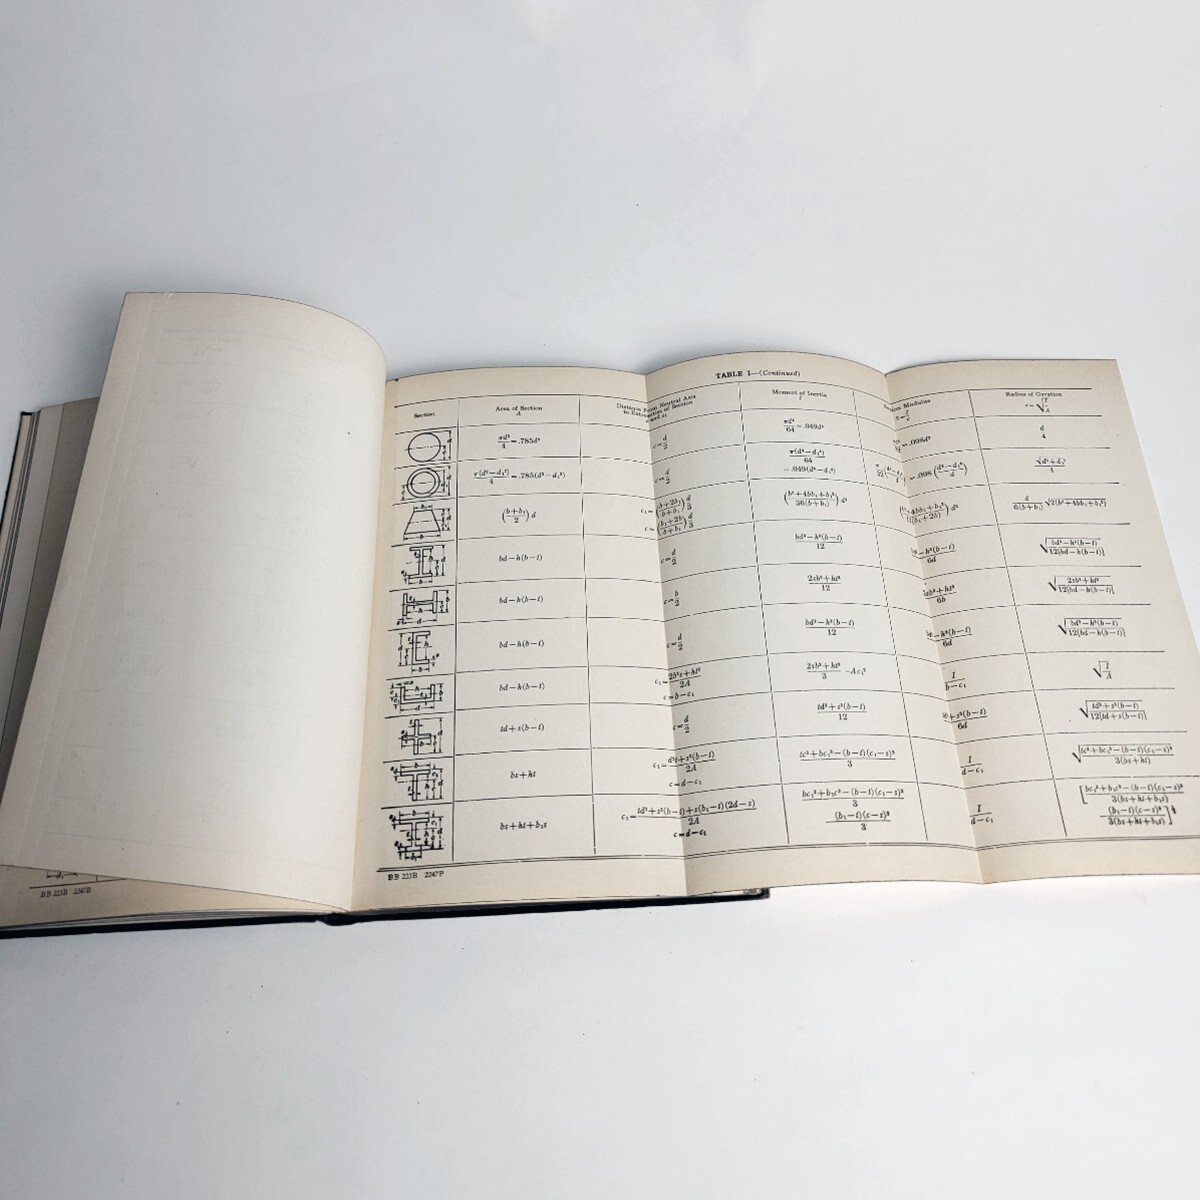 TABLE I—(Continued)
Section
Area of Section A
Distance From Neutral Axis to Extremities of Section
Moment of Inertia I
Modulus
Radius of Gyration r=√I/A
πd²/4=.785d²
c=d/2
πd⁴/64=.049d⁴
d/4
π(d²−d₁²)/4=.785(d²−d₁²)
c=d/2
π(d⁴−d₁⁴)/64
=.049(d⁴−d₁⁴)
√d²+d₁²/4
(b+b₁/2)d
(b²+4bb₁+b₁²/36(b+b₁))d³
d/6(b+b₁)√2(b²+4bb₁+b₁²)
bd−h(b−t)
c=d/2
bd³−h³(b−t)/12
√bd³−h³(b−t)/12[bd−h(b−t)]
bd−h(b−t)
c=b/2
2sb³+ht³/12
√2sb³+ht³/12[bd−h(b−t)]
bd−h(b−t)
c=d/2
bd³−h³(b−t)/12
√bd³−h³(b−t)/12[bd−h(b−t)]
bd−h(b−t)
c₁=2b²s+ht²/2A
c=b−c₁
2sb³+ht³/3−Ac₁²
I/b−c₁
√I/A
td+s(b−t)
c=d/2
td³+s³(b−t)/12
√td³+s³(b−t)/12[td+s(b−t)]
bs+ht
c₁=d²t+s²(b−t)/2A
c=d−c₁
tc³+bc₁³−(b−t)(c₁−s)³/3
I/d−c₁
√tc³+bc₁³−(b−t)(c₁−s)³/3(bs+ht)
bs+ht+b₁s
c₁=td²+s²(b−t)+s(b₁−t)(2d−s)/2A
c=d−c₁
bc₁³+b₁c³−(b−t)(c₁−s)³/3
−(b₁−t)(c−s)³/3
I/d−c₁
[bc₁³+b₁c³−(b−t)(c₁−s)³/3(bs+ht+b₁s)
−(b₁−t)(c−s)³/3(bs+ht+b₁s)]½
BB 223B 2247B
BB 223B 2247B